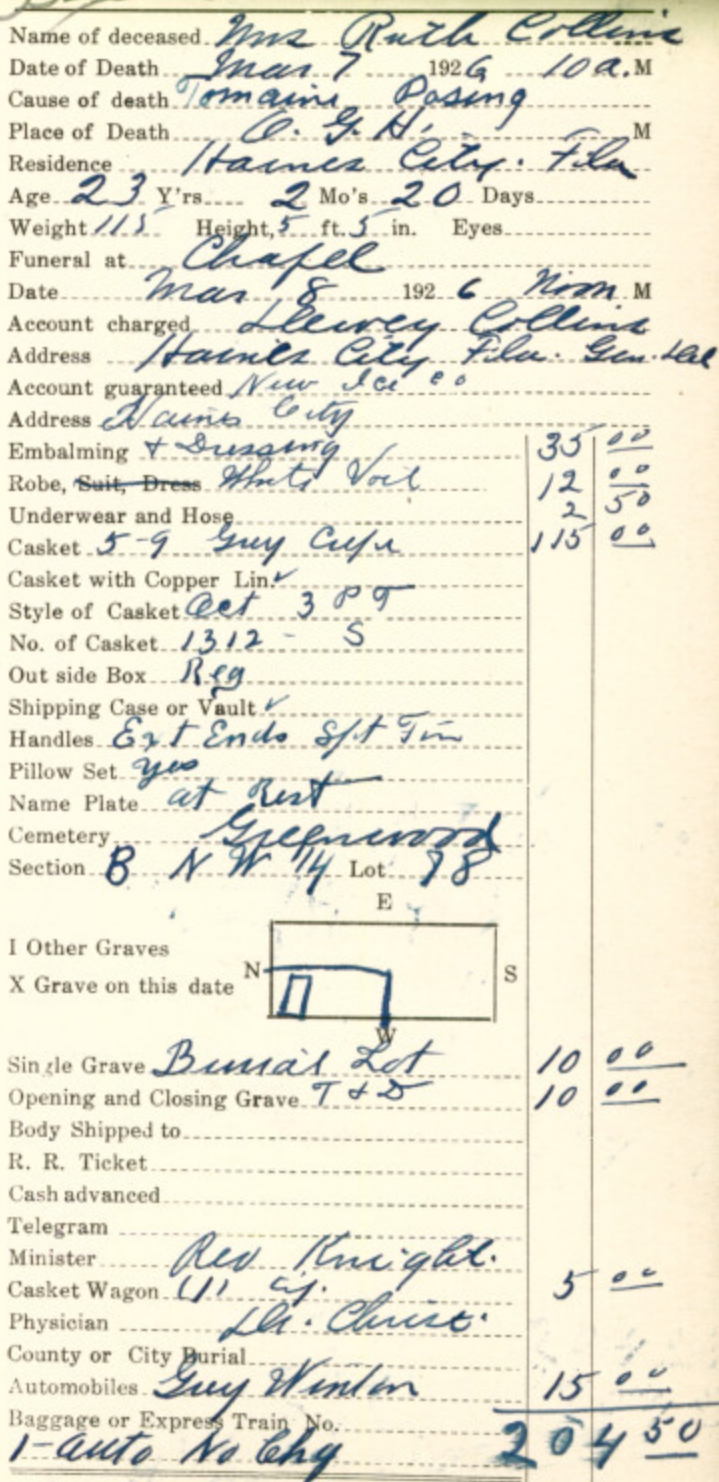 Name of deceased Mrs Ruth Collins
Date of Death Mar 7 1926 10 a.M
Cause of death Tomaine Posing
Place of Death O. G. H. M
Residence Haines City. Fla
Age 23 Y'rs 2 Mo's 20 Days
Weight 115 Height, 5 ft. 5 in. Eyes
Funeral at Chapel
Date Mar 8 1926 Noon M
Account charged Dewey Collins
Address Haines City Fla. Gen. Del
Account guaranteed New Ice co
Address Haines City
Embalming + Dressing 35 00
Robe, Suit, Dress White Voil 12 00
Underwear and Hose 2 50
Casket 5-9 Grey Crepe 115 00
Casket with Copper Lin. ✓
Style of Casket Oct 3 P T
No. of Casket 1312 - S
Out side Box Reg
Shipping Case or Vault ✓
Handles Ext Ends
Pillow Set yes
Name Plate at Rest
Cemetery Greenwood
Section B N W 1/4 Lot 98
E
I Other Graves
N S
X Grave on this date
W
Single Grave Burial Lot 10 00
Opening and Closing Grave T & D 10 00
Body Shipped to
R. R. Ticket
Cash advanced
Telegram
Minister Rev Knight.
Casket Wagon 5 00
Physician Dr. Christ.
County or City Burial
Automobiles Guy Winton 15 00
Baggage or Express Train No.
1-auto No Chg 204 50